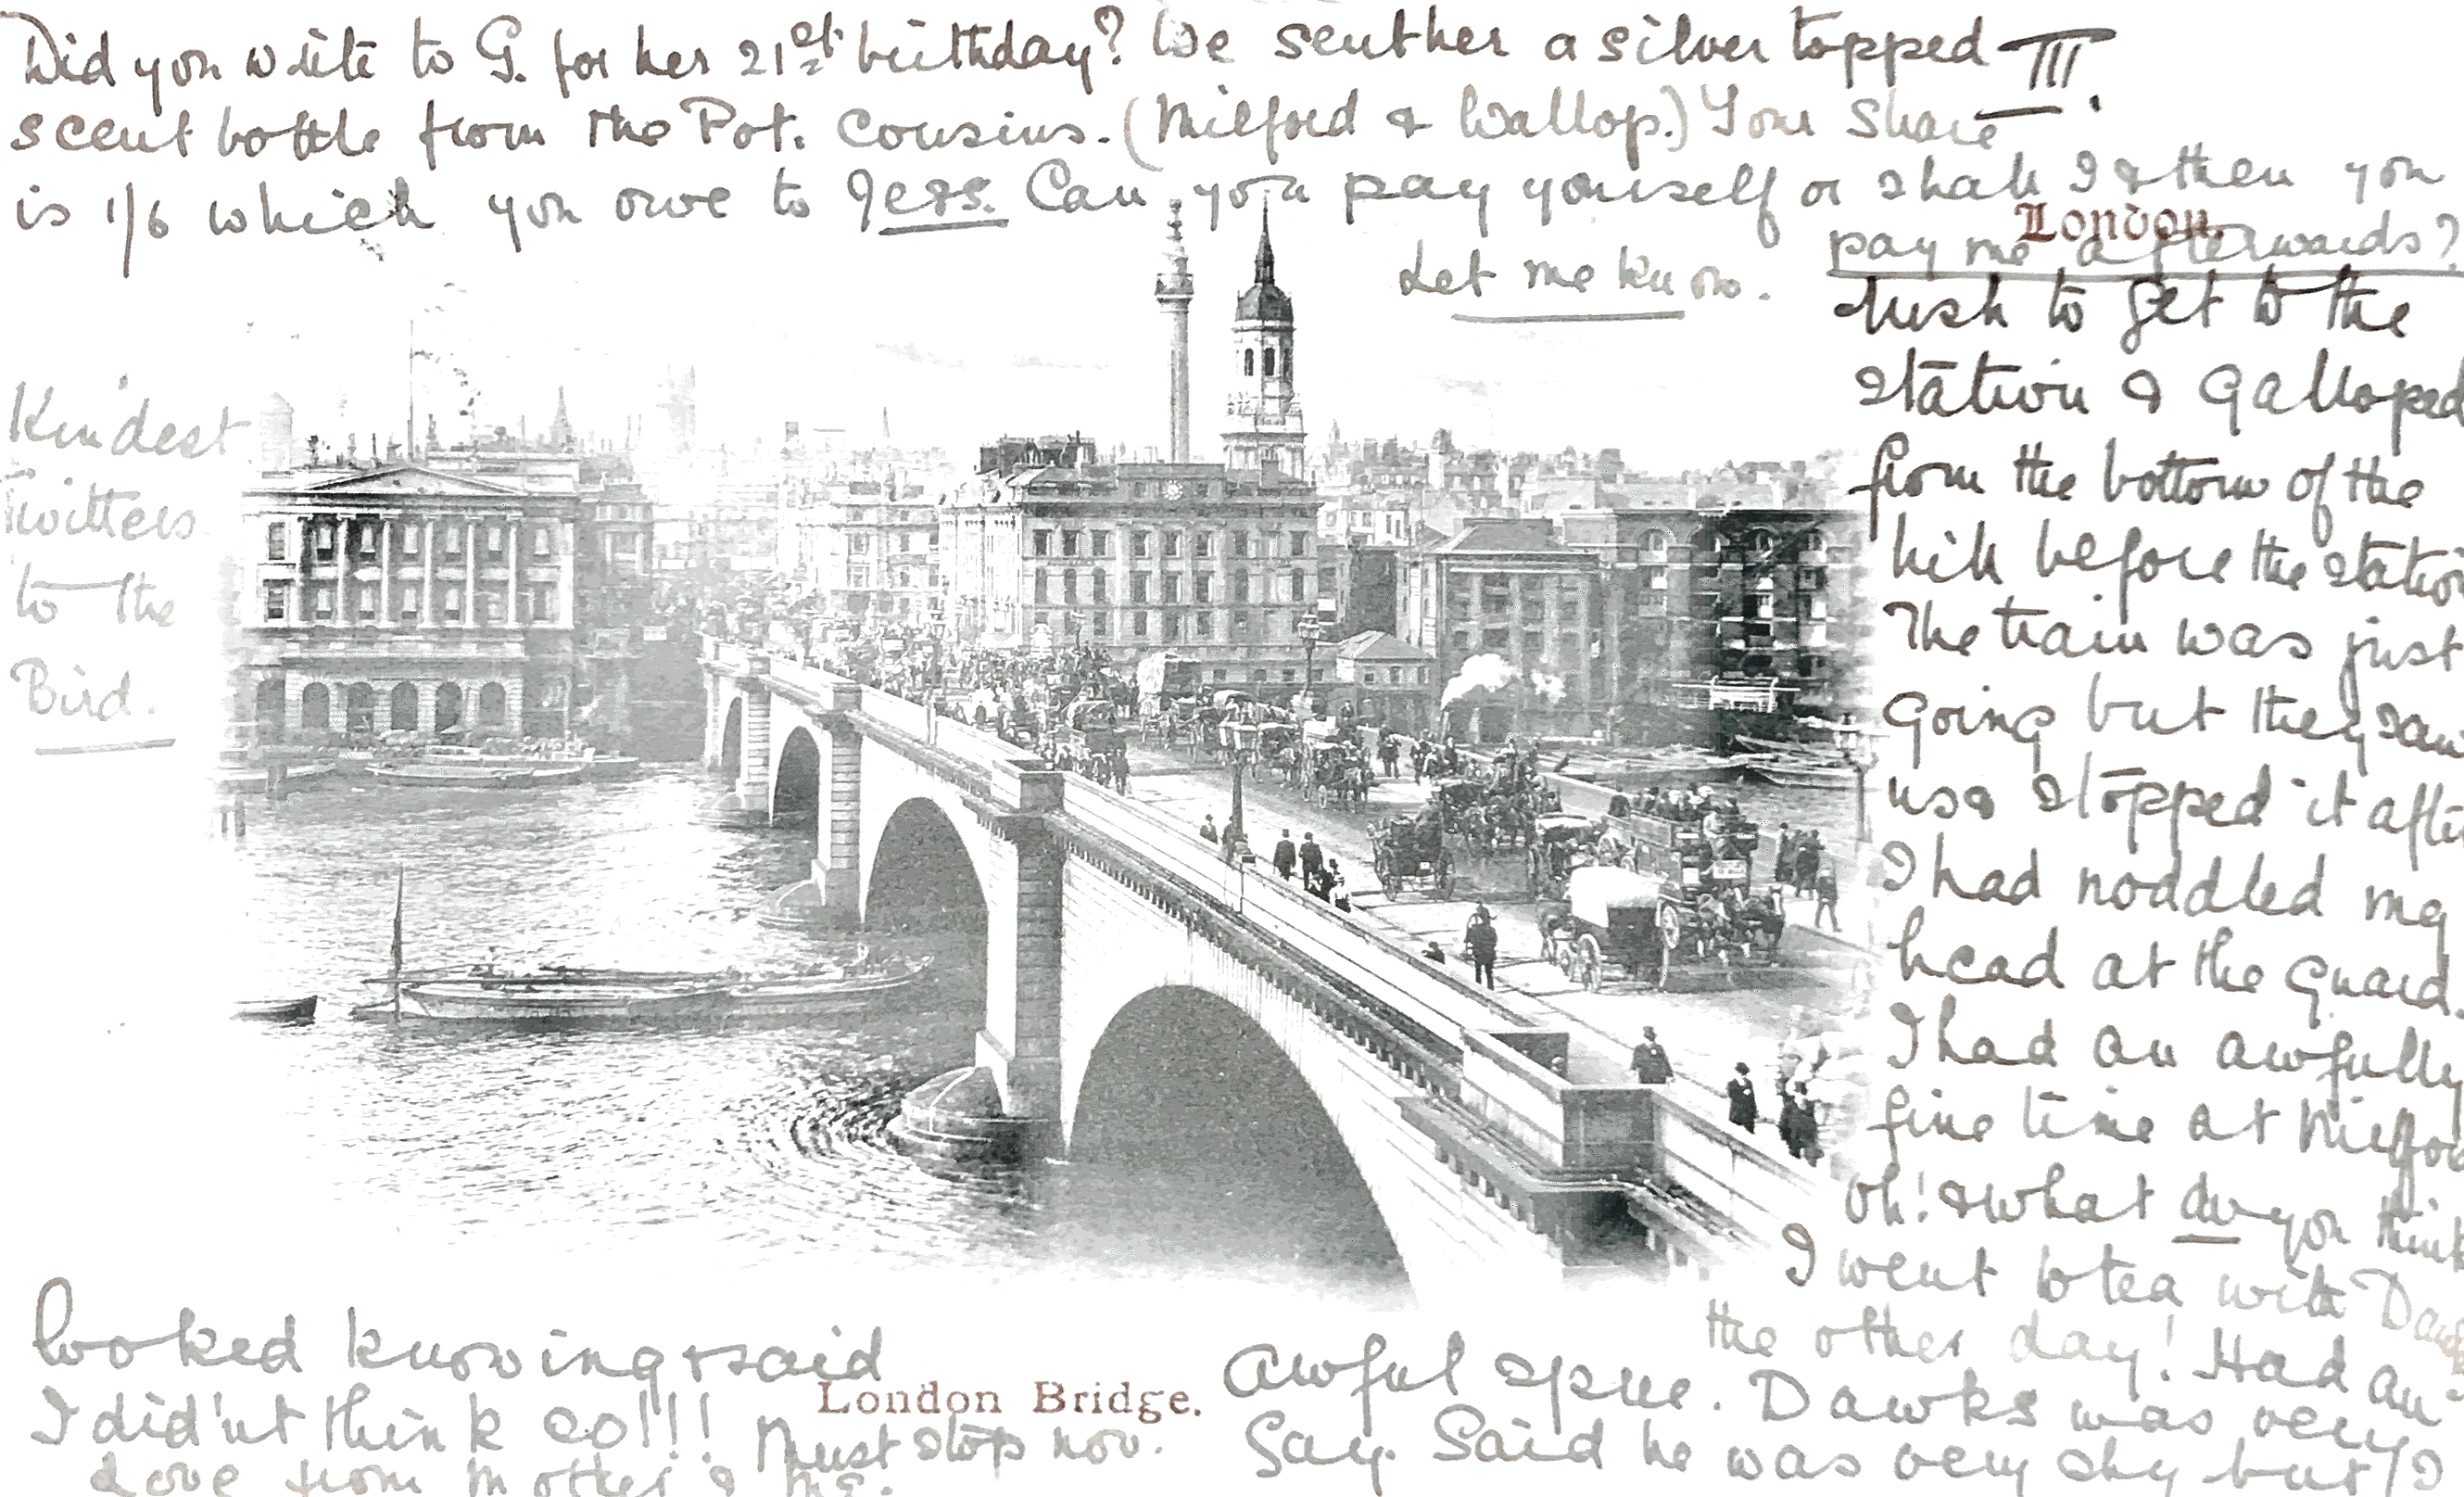 Did you write to G. for her 21st birthday? We sent her a silver topped
III.
scent bottle from the Pot. Cousins. (Milford & Wallop.) Your share
is 1/6 which you owe to Jess. Can you pay yourself or shall I & then you
pay me afterwards?
Let me know.
London.
rush to get to the
station & galloped
from the bottom of the
hill before the station
The train was just
going but they saw
us & stopped it after
I had noddled my
head at the guard.
I had an awfully
fine time at Milford
oh! & what do you think
I went to tea with Dawks
the other day! Had an
awful spree. Dawks was very
gay. Said he was very shy but I
looked knowing & said
I did'nt think so!!! Must stop now.
Love from Mother & me.
London Bridge.
Kindest
Twitters
to the
Bird.